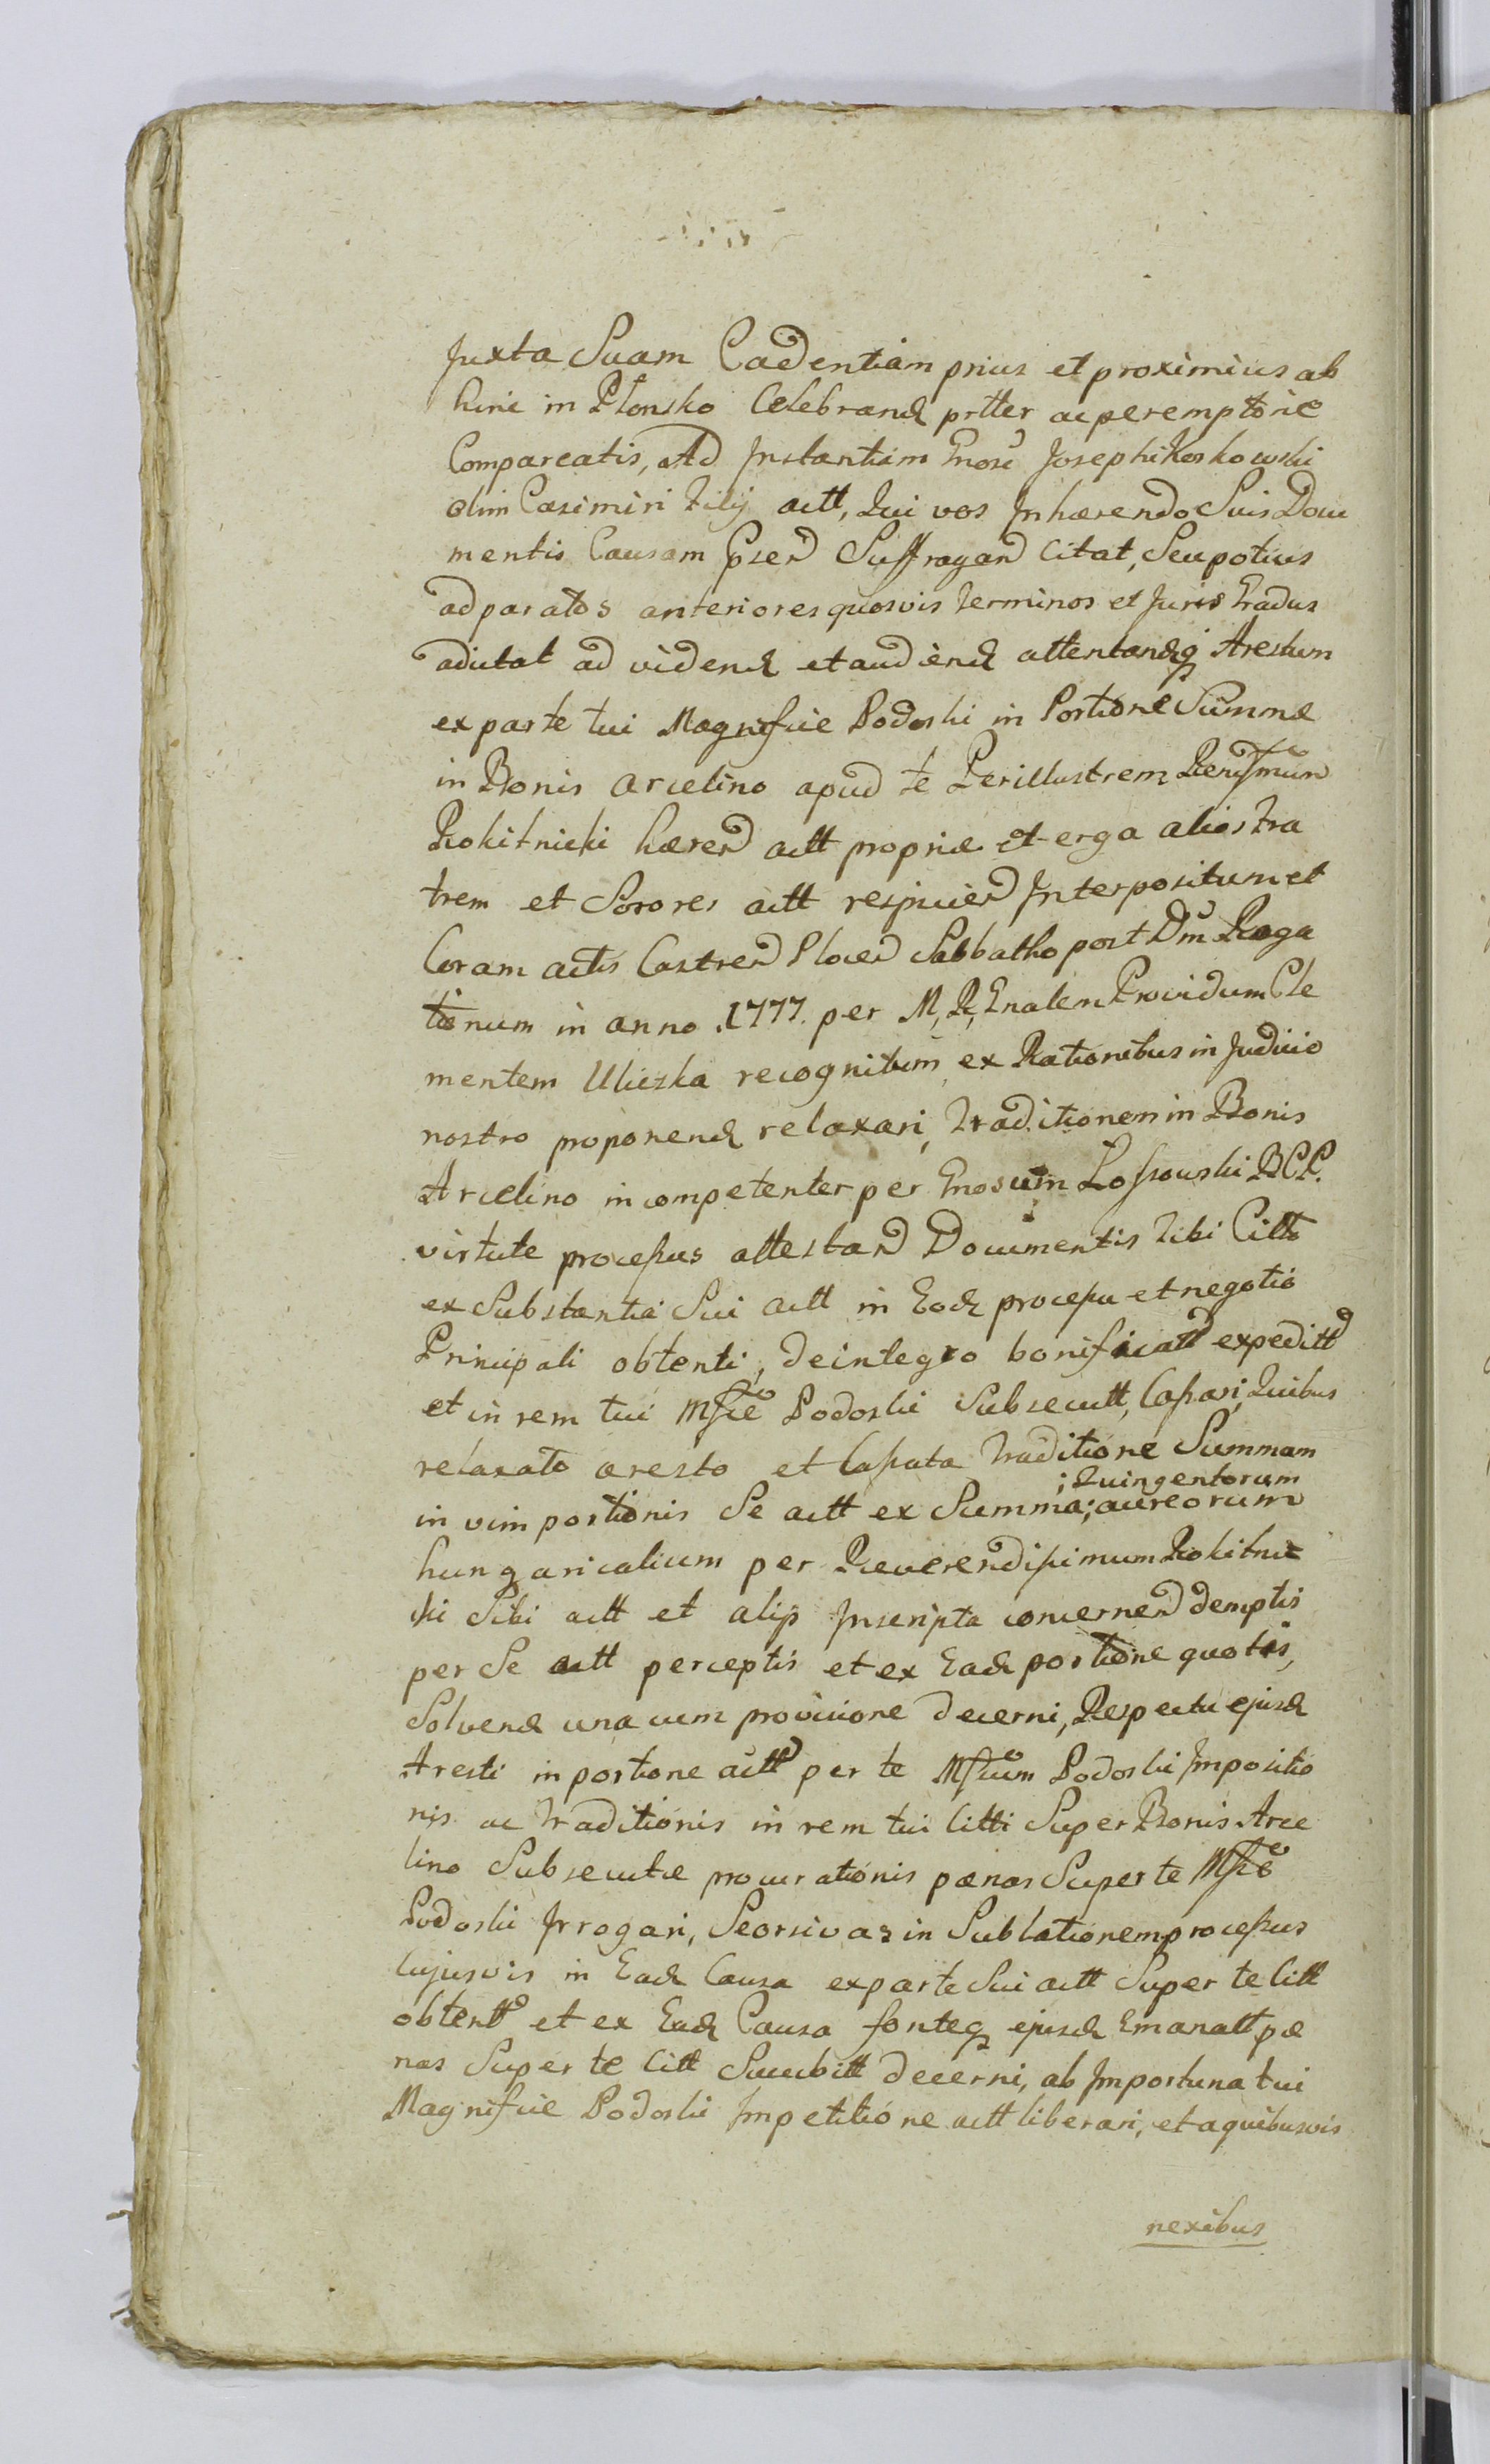 Juxta Suam Cadentiam prius et proximius ab
hinc in Plonsko Celebrand prtter ac peremptorie
Compareatis, Ad Instantiam Gnosi Josephi Koskowski
olim Casimiri Filij actt, Qui vos Inhaerendo Suis Docu
mentis Causam Gsen Suffragan Citat, Seu potius
ad paratos anteriores quosvis Terminos et Juris Gradus
adcitat ad vidend et audiend attentandq Arestum
ex parte tui Magnifice Podoski in Portione Summae
in Bonis Arcelino apud te Perillustrem Rendssmum
Rokitnicki haeren actt propriae et erga alios Fra
trem et Sorores actt respicien Interpositum et
Coram actis Castren Plocen Sabbatho post Dm Roga
tionum in anno .1777. per M, R, Gnalem Providum Cle
mentem Uliczka recognitum ex Rationibus in Judicio
nostro proponend relaxari, Traditionem in Bonis
Arcelino incompetenter per Gnosum Lossowski B.C.P.
virtute processus attestan Documentis Tibi Citto
ex Substantia Sui actt in Eod processu et negotio
Principali obtenti, de integro bonificatt expeditt
et in rem tui Mfce Podoski Subsecutt, Cassari, Quibus
relaxato aresto et Cassata Traditione Summam
in vim portionis Se actt ex Summa; aureorum
;Quingentorum
hungaricalium per Reverendissimum Rokitnic
ki Sibi actt et alijs Inscripta concernen demptis
per Se actt perceptis et ex Ead portione quotis,
Solvend una cum provisione decerni, Respectu ejusd
Aresti in portione actt per te Mfcum Podoski Impositio
nis ac Traditionis in rem tui Citti Super Bonis Arce
lino Subsecutae procurationis paenas Super te Mfce
Podoski Irrogari, Seorsivas in Sublationem processus
cujusvis in Ead Causa ex parte Sui actt Super te Citt
obtentt et ex Ead Causa fonteq ejusd Emanatt pae
nas Super te Citt Succubitt decerni, ab Importuna tui
Magnifice Podoski Impetitione actt liberari, et a quibusvis
nexibus